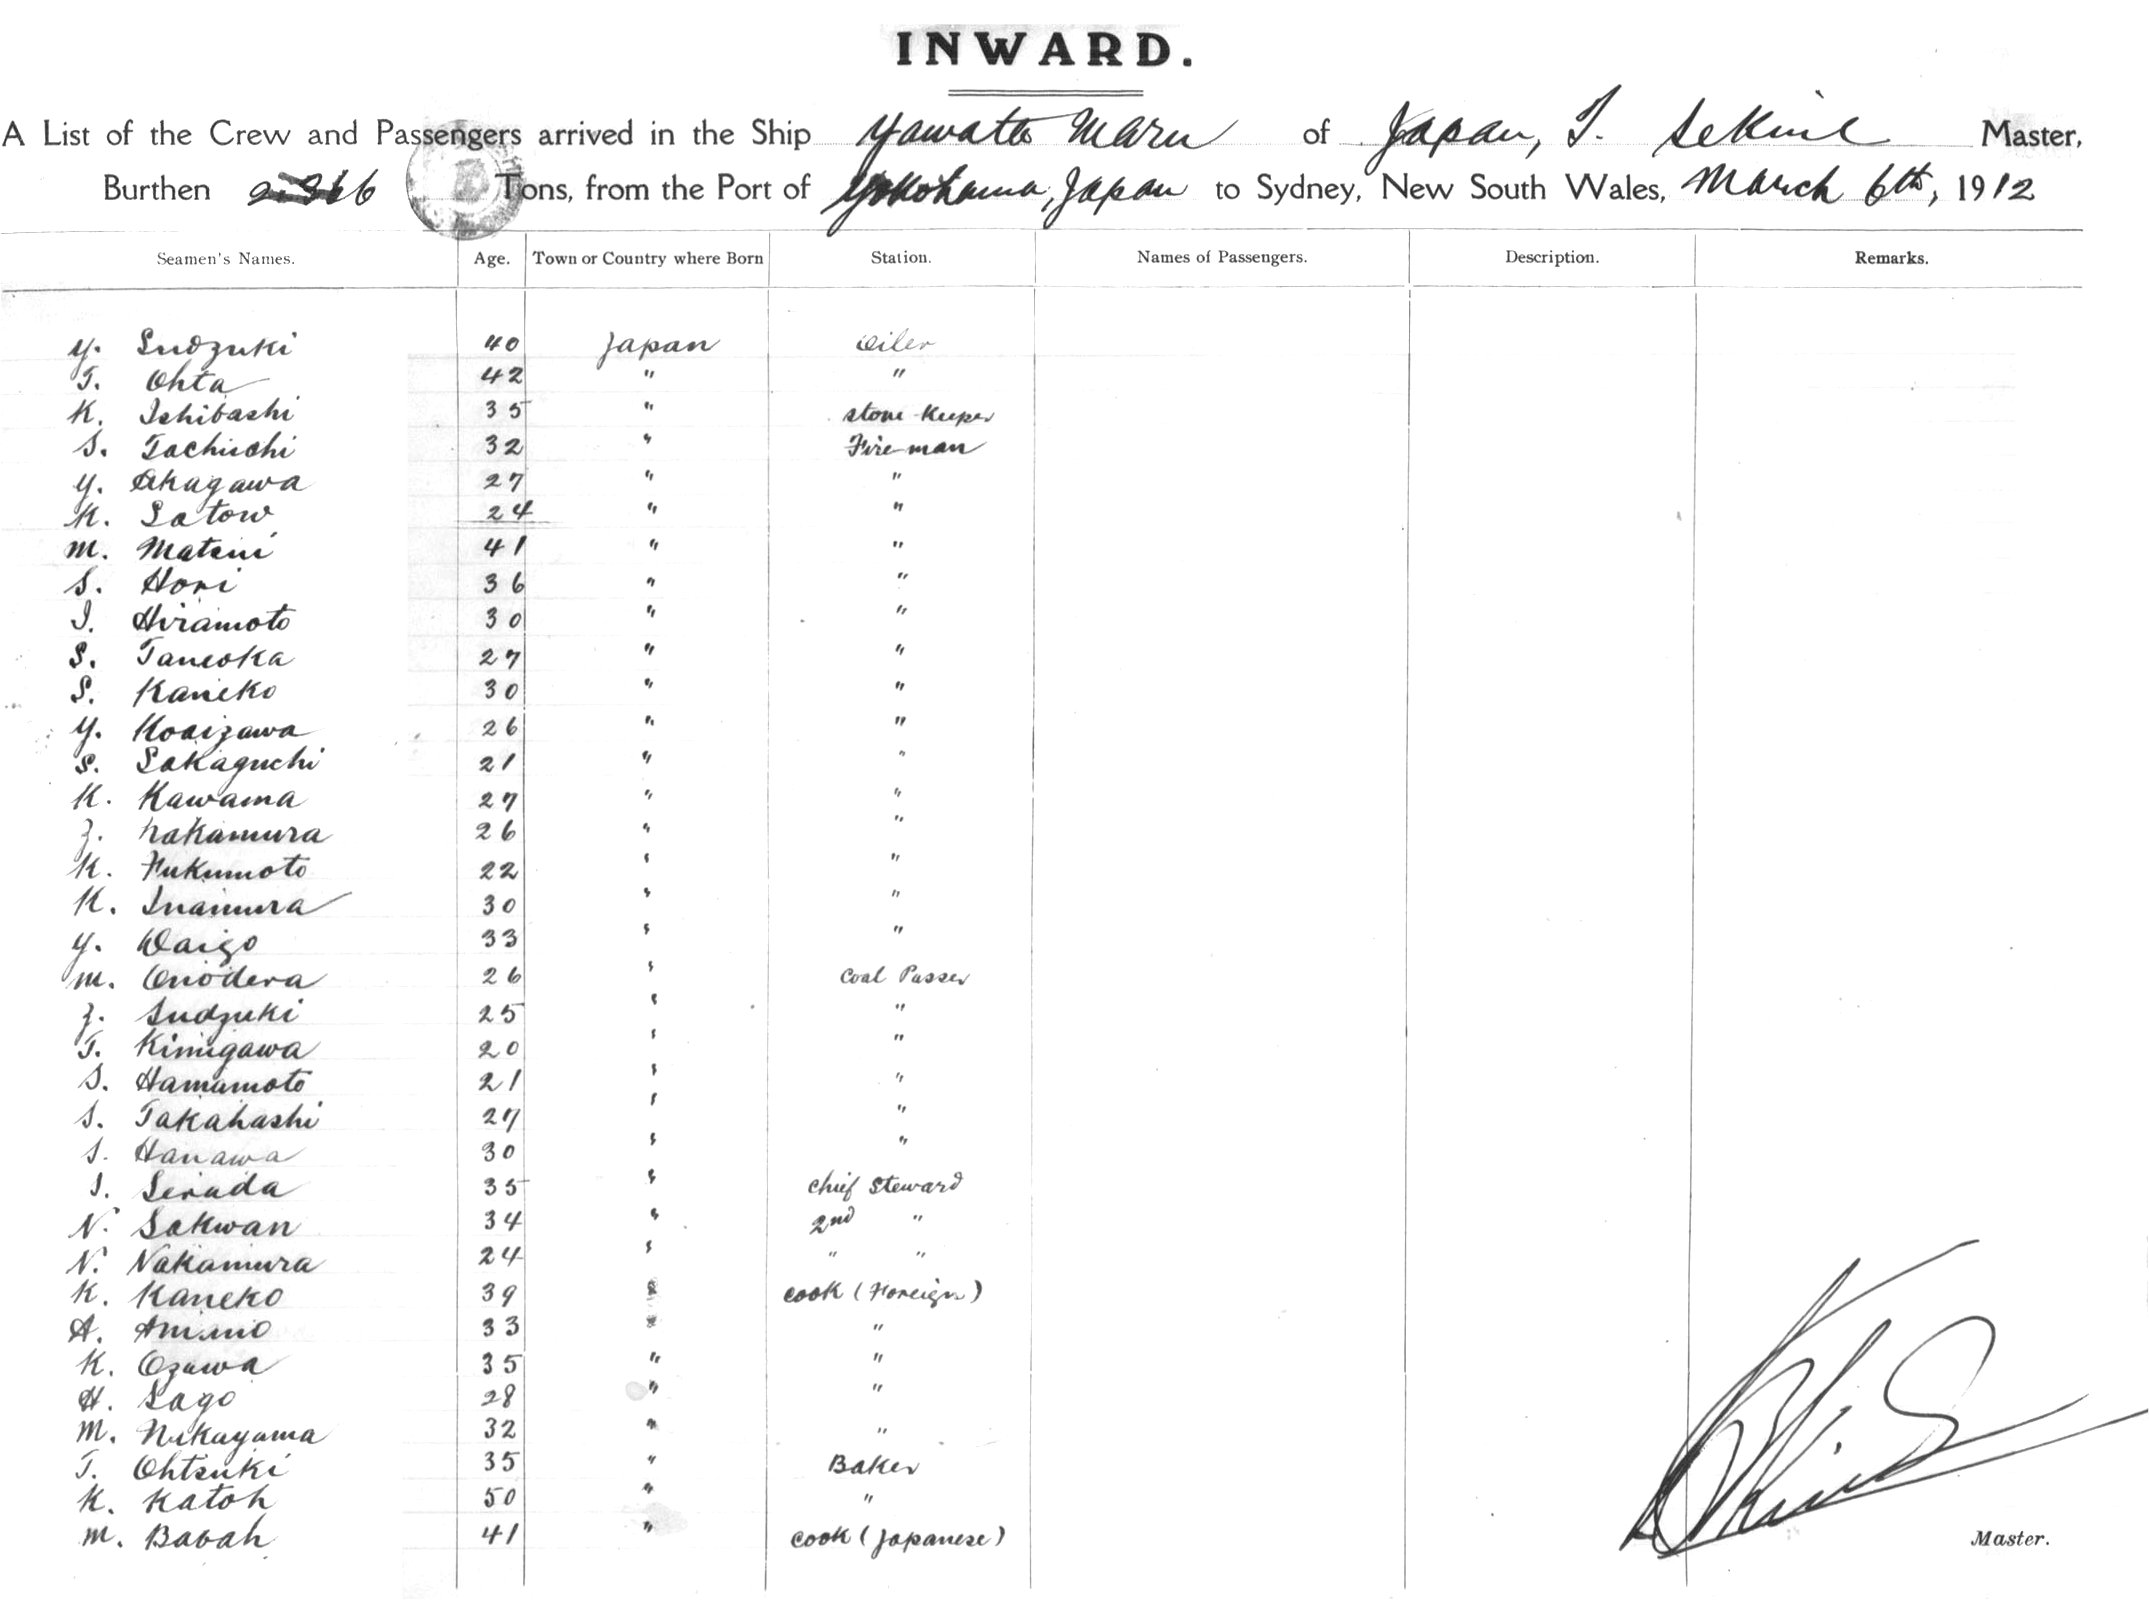 INWARD.
A List of the Crew and Passengers arrived in the Ship Yawata Maru of Japan, T. Sekine Master,
Burthen Tons, from the Port of Yokohama, Japan to Sydney, New South Wales, March 6th, 1912
Seamen's Names. Age. Town or Country where Born Station. Names of Passengers. Description. Remarks.
Y. Sudzuki 40 Japan Oiler
T. Ohta 42 " "
K. Ishibashi 35 " Store Keeper
S. 32 " Fire-man
Y. Akagawa 27 " "
K. Satow 24 " "
M. Matsui 41 " "
S. Hori 36 " "
I. Hiramoto 30 " "
S. Taneoka 27 " "
S. Kaneko 30 " "
Y. 26 " "
S. Sakaguchi 21 " "
K. Kawama 27 " "
Z. Nakamura 26 " "
K. Fukumoto 22 " "
K. Inamura 30 " "
Y. Daigo 33 " "
M. Onodera 26 " Coal Passer
Z. Sudzuki 25 " "
T. Kimigawa 20 " "
S. Hamamoto 21 " "
S. Takahashi 27 " "
S. Hanawa 30 " "
S. 35 " Chief Steward
N. Sakwan 34 " 2nd "
N. Nakamura 24 " " "
K. Kaneko 39 " Cook (Foreign)
A. Amano 33 " "
K. Ozawa 35 " "
H. Sago 28 " "
M. Nakayama 32 " "
T. Ohtsuki 35 " Baker
K. Katoh 50 " "
M. Babah 41 " Cook (Japanese)
Master.